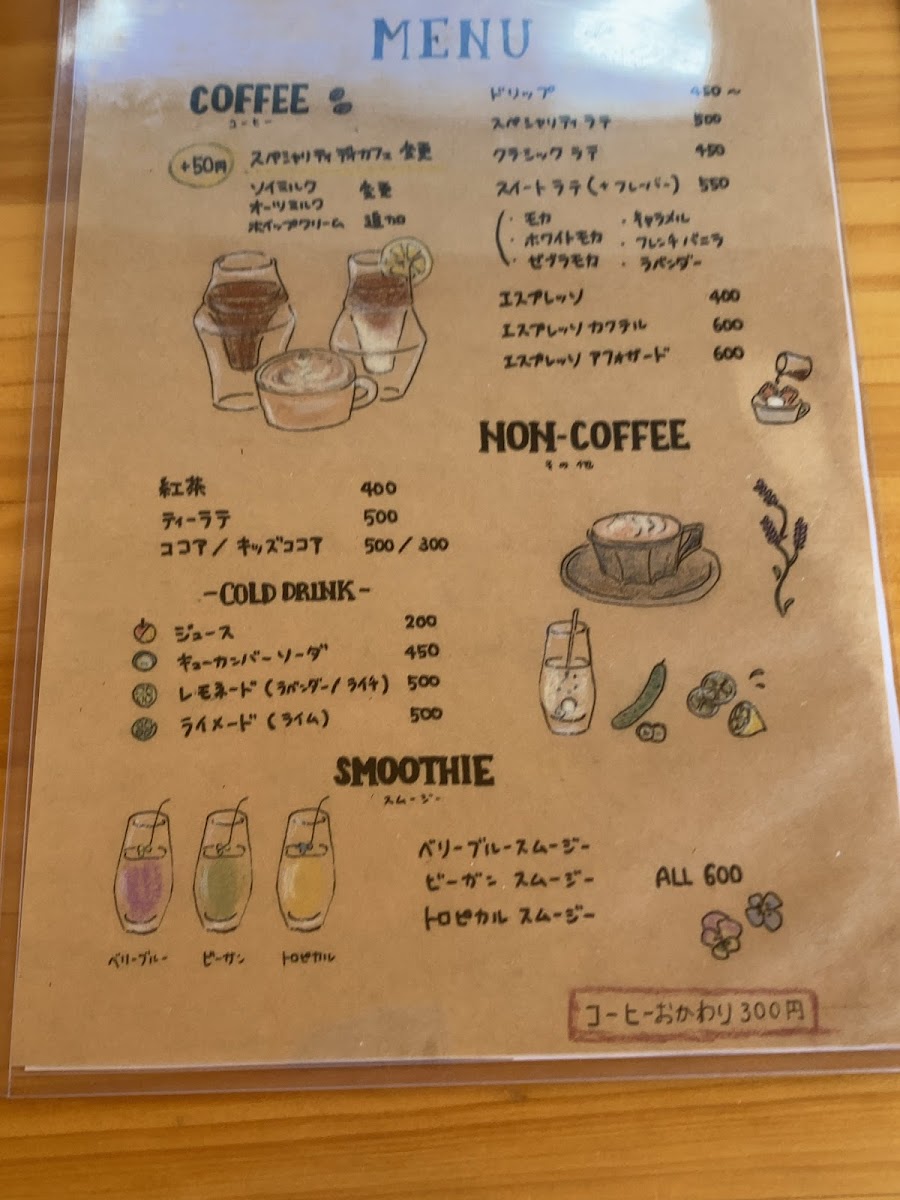 MENU
COFFEE
コーヒー
+50円
スペシャリティ デカフェ 変更
ソイミルク 変更
オーツミルク
ホイップクリーム 追加
ドリップ 450〜
スペシャリティ ラテ 500
クラシック ラテ 450
スイート ラテ (+フレーバー) 550
・モカ ・キャラメル
・ホワイトモカ ・フレンチバニラ
・ゼブラモカ ・ラベンダー
エスプレッソ 400
エスプレッソ カクテル 600
エスプレッソ アフォガード 600
NON-COFFEE
その他
紅茶 400
ティーラテ 500
ココア / キッズココア 500 / 300
-COLD DRINK-
ジュース 200
キューカンバーソーダ 450
レモネード (ラベンダー/ライチ) 500
ライメード (ライム) 500
SMOOTHIE
スムージー
ベリーブルースムージー
ビーガン スムージー ALL 600
トロピカル スムージー
ベリーブルー ビーガン トロピカル
コーヒーおかわり 300円